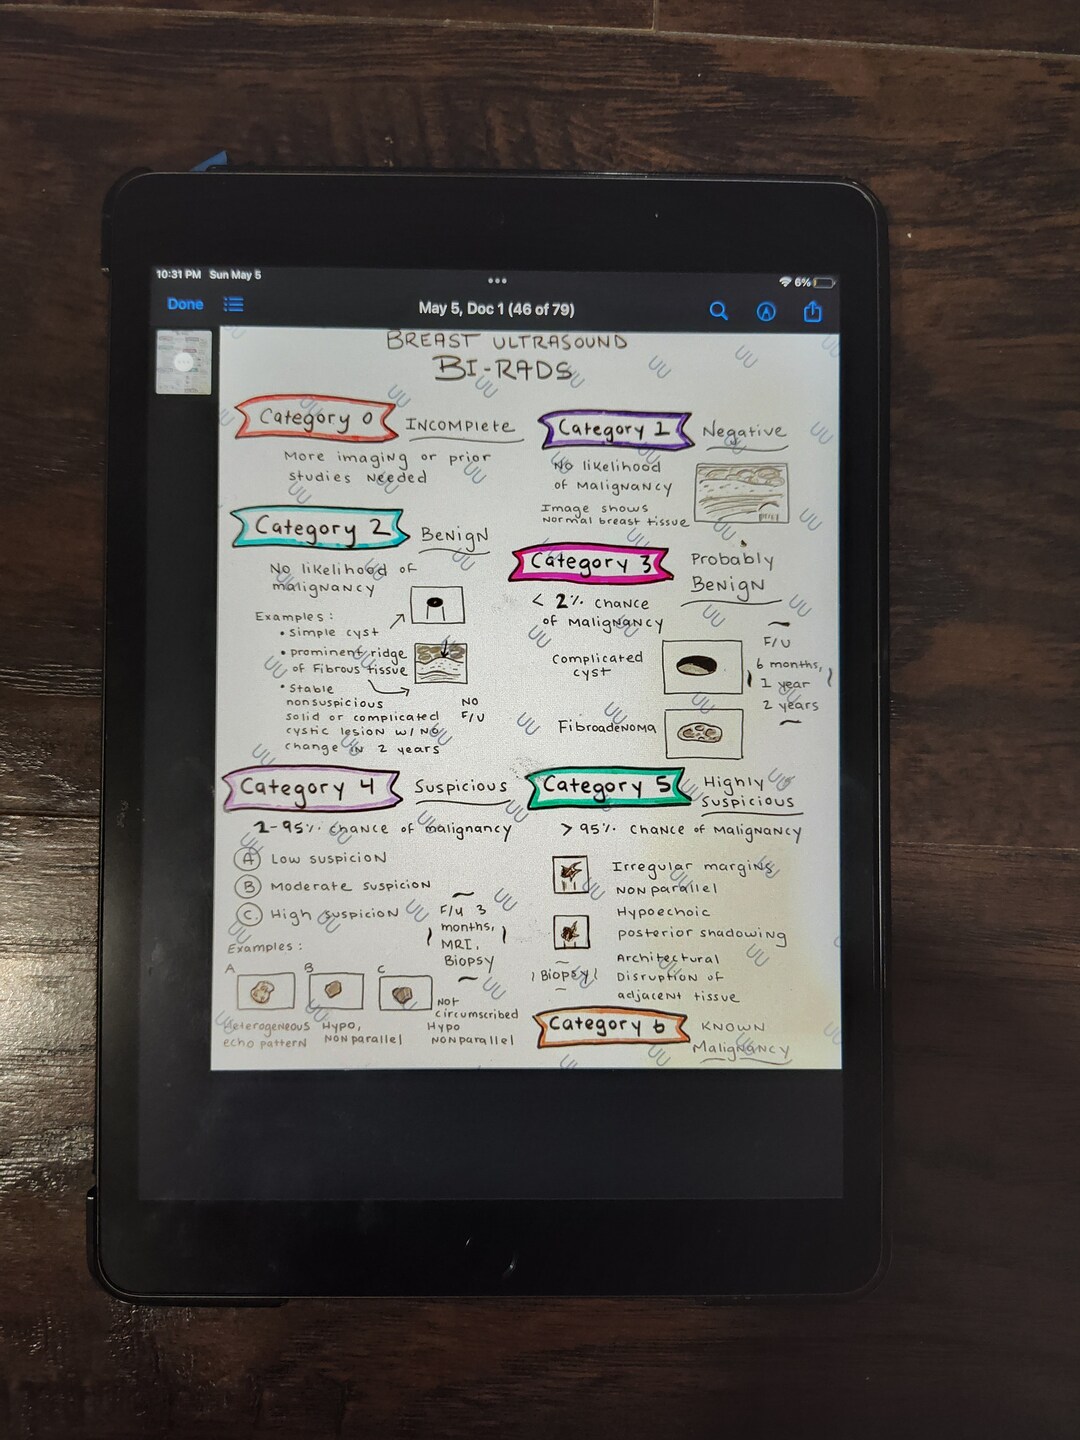 10:31 PM Sun May 5
6%
Done
May 5, Doc 1 (46 of 79)
BREAST ULTRASOUND
BI-RADS
Category 0 INCOMPLETE
More imaging or prior
studies needed
Category 1 Negative
No likelihood
of malignancy
Image shows
normal breast tissue
Category 2 Benign
No likelihood of
malignancy
Examples:
• simple cyst
• prominent ridge
of fibrous tissue
• stable
nonsuspicious
solid or complicated
cystic lesion w/ no
change in 2 years
NO
F/U
Category 3 Probably
Benign
< 2% chance
of malignancy
complicated
cyst
Fibroadenoma
F/U
6 months,
1 year
2 years
Category 4 Suspicious
2-95% chance of malignancy
A Low suspicion
B Moderate suspicion
C. High suspicion
F/U 3
months,
MRI,
Biopsy
Examples:
A B C
Heterogeneous
echo pattern
Hypo,
nonparallel
Not
circumscribed
Hypo
nonparallel
Category 5 Highly
Suspicious
> 95% chance of malignancy
Irregular margins
nonparallel
Hypoechoic
posterior shadowing
Architectural
Disruption of
adjacent tissue
Biopsy
Category 6 KNOWN
Malignancy
UU